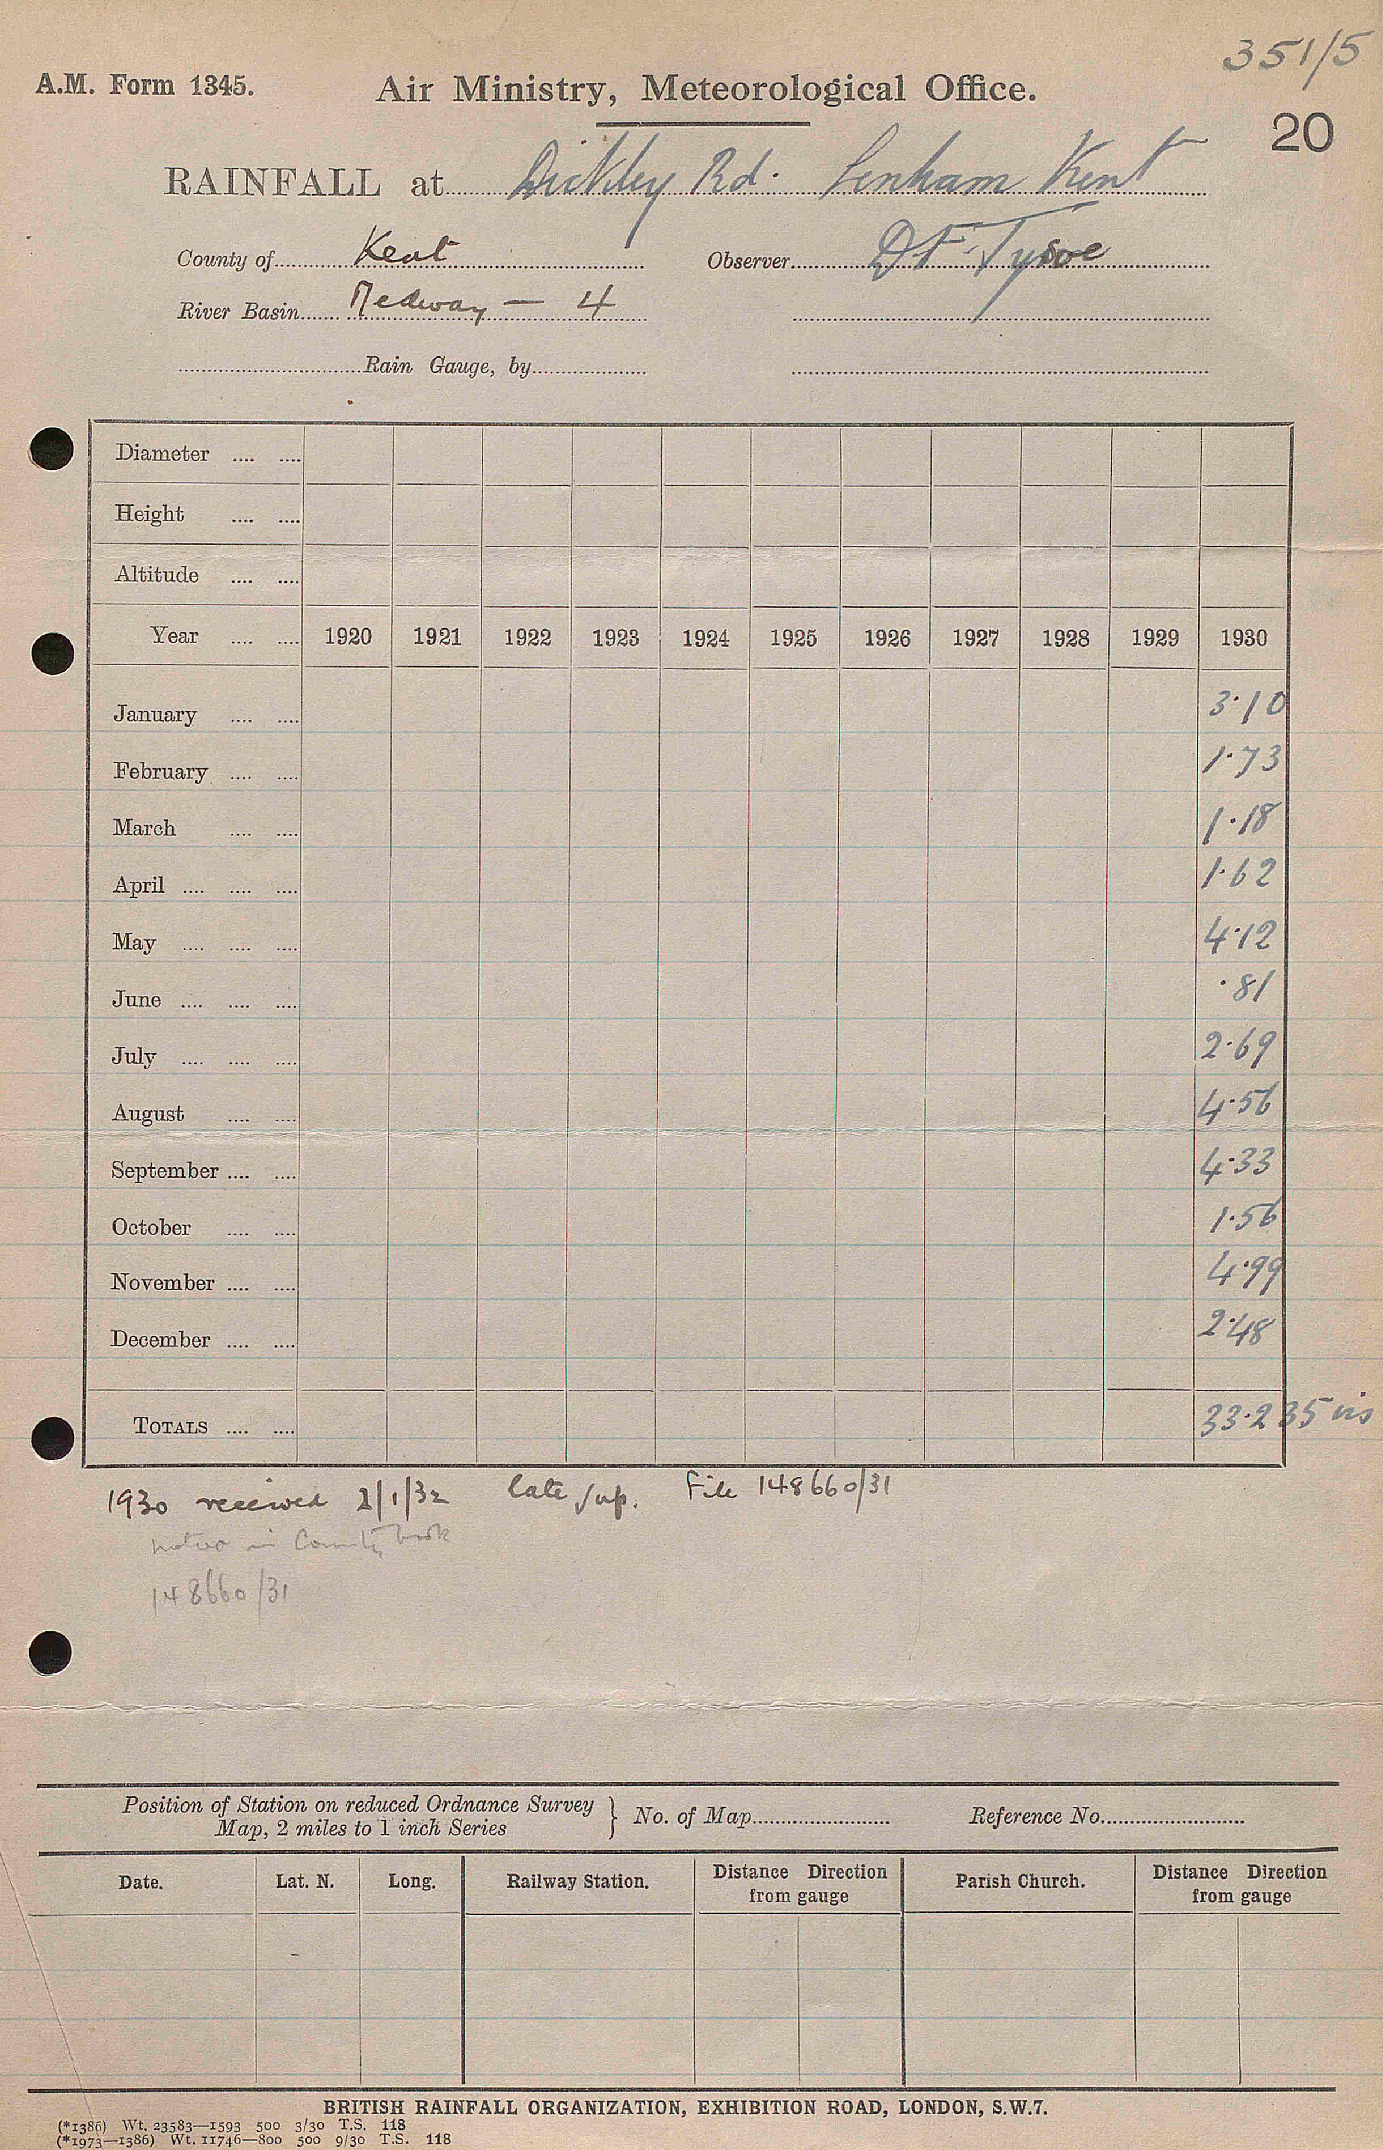 351/5
A.M. Form 1345. Air Ministry, Meteorological Office.
20
RAINFALL at Dickley Rd. Lenham Kent
County of Kent Observer D F Tysoe
River Basin Medway — 4
Rain Gauge, by
Diameter
Height
Altitude
Year 1920 1921 1922 1923 1924 1925 1926 1927 1928 1929 1930
January 3·10
February 1·73
March 1·18
April 1·62
May 4·12
June ·81
July 2·69
August 4·56
September 4·33
October 1·56
November 4·99
December 2·48
TOTALS 33·235 ins
1930 received 2/1/32 late sup. File 148660/31
in County book
148660/31
Position of Station on reduced Ordnance Survey
Map, 2 miles to 1 inch Series } No. of Map Reference No.
Date. Lat. N. Long. Railway Station. Distance Direction from gauge Parish Church. Distance Direction from gauge
BRITISH RAINFALL ORGANIZATION, EXHIBITION ROAD, LONDON, S.W.7.
(*1386) Wt. 23583—1593 500 3/30 T.S. 118
(*1973—1386) Wt. 11746—800 500 9/30 T.S. 118